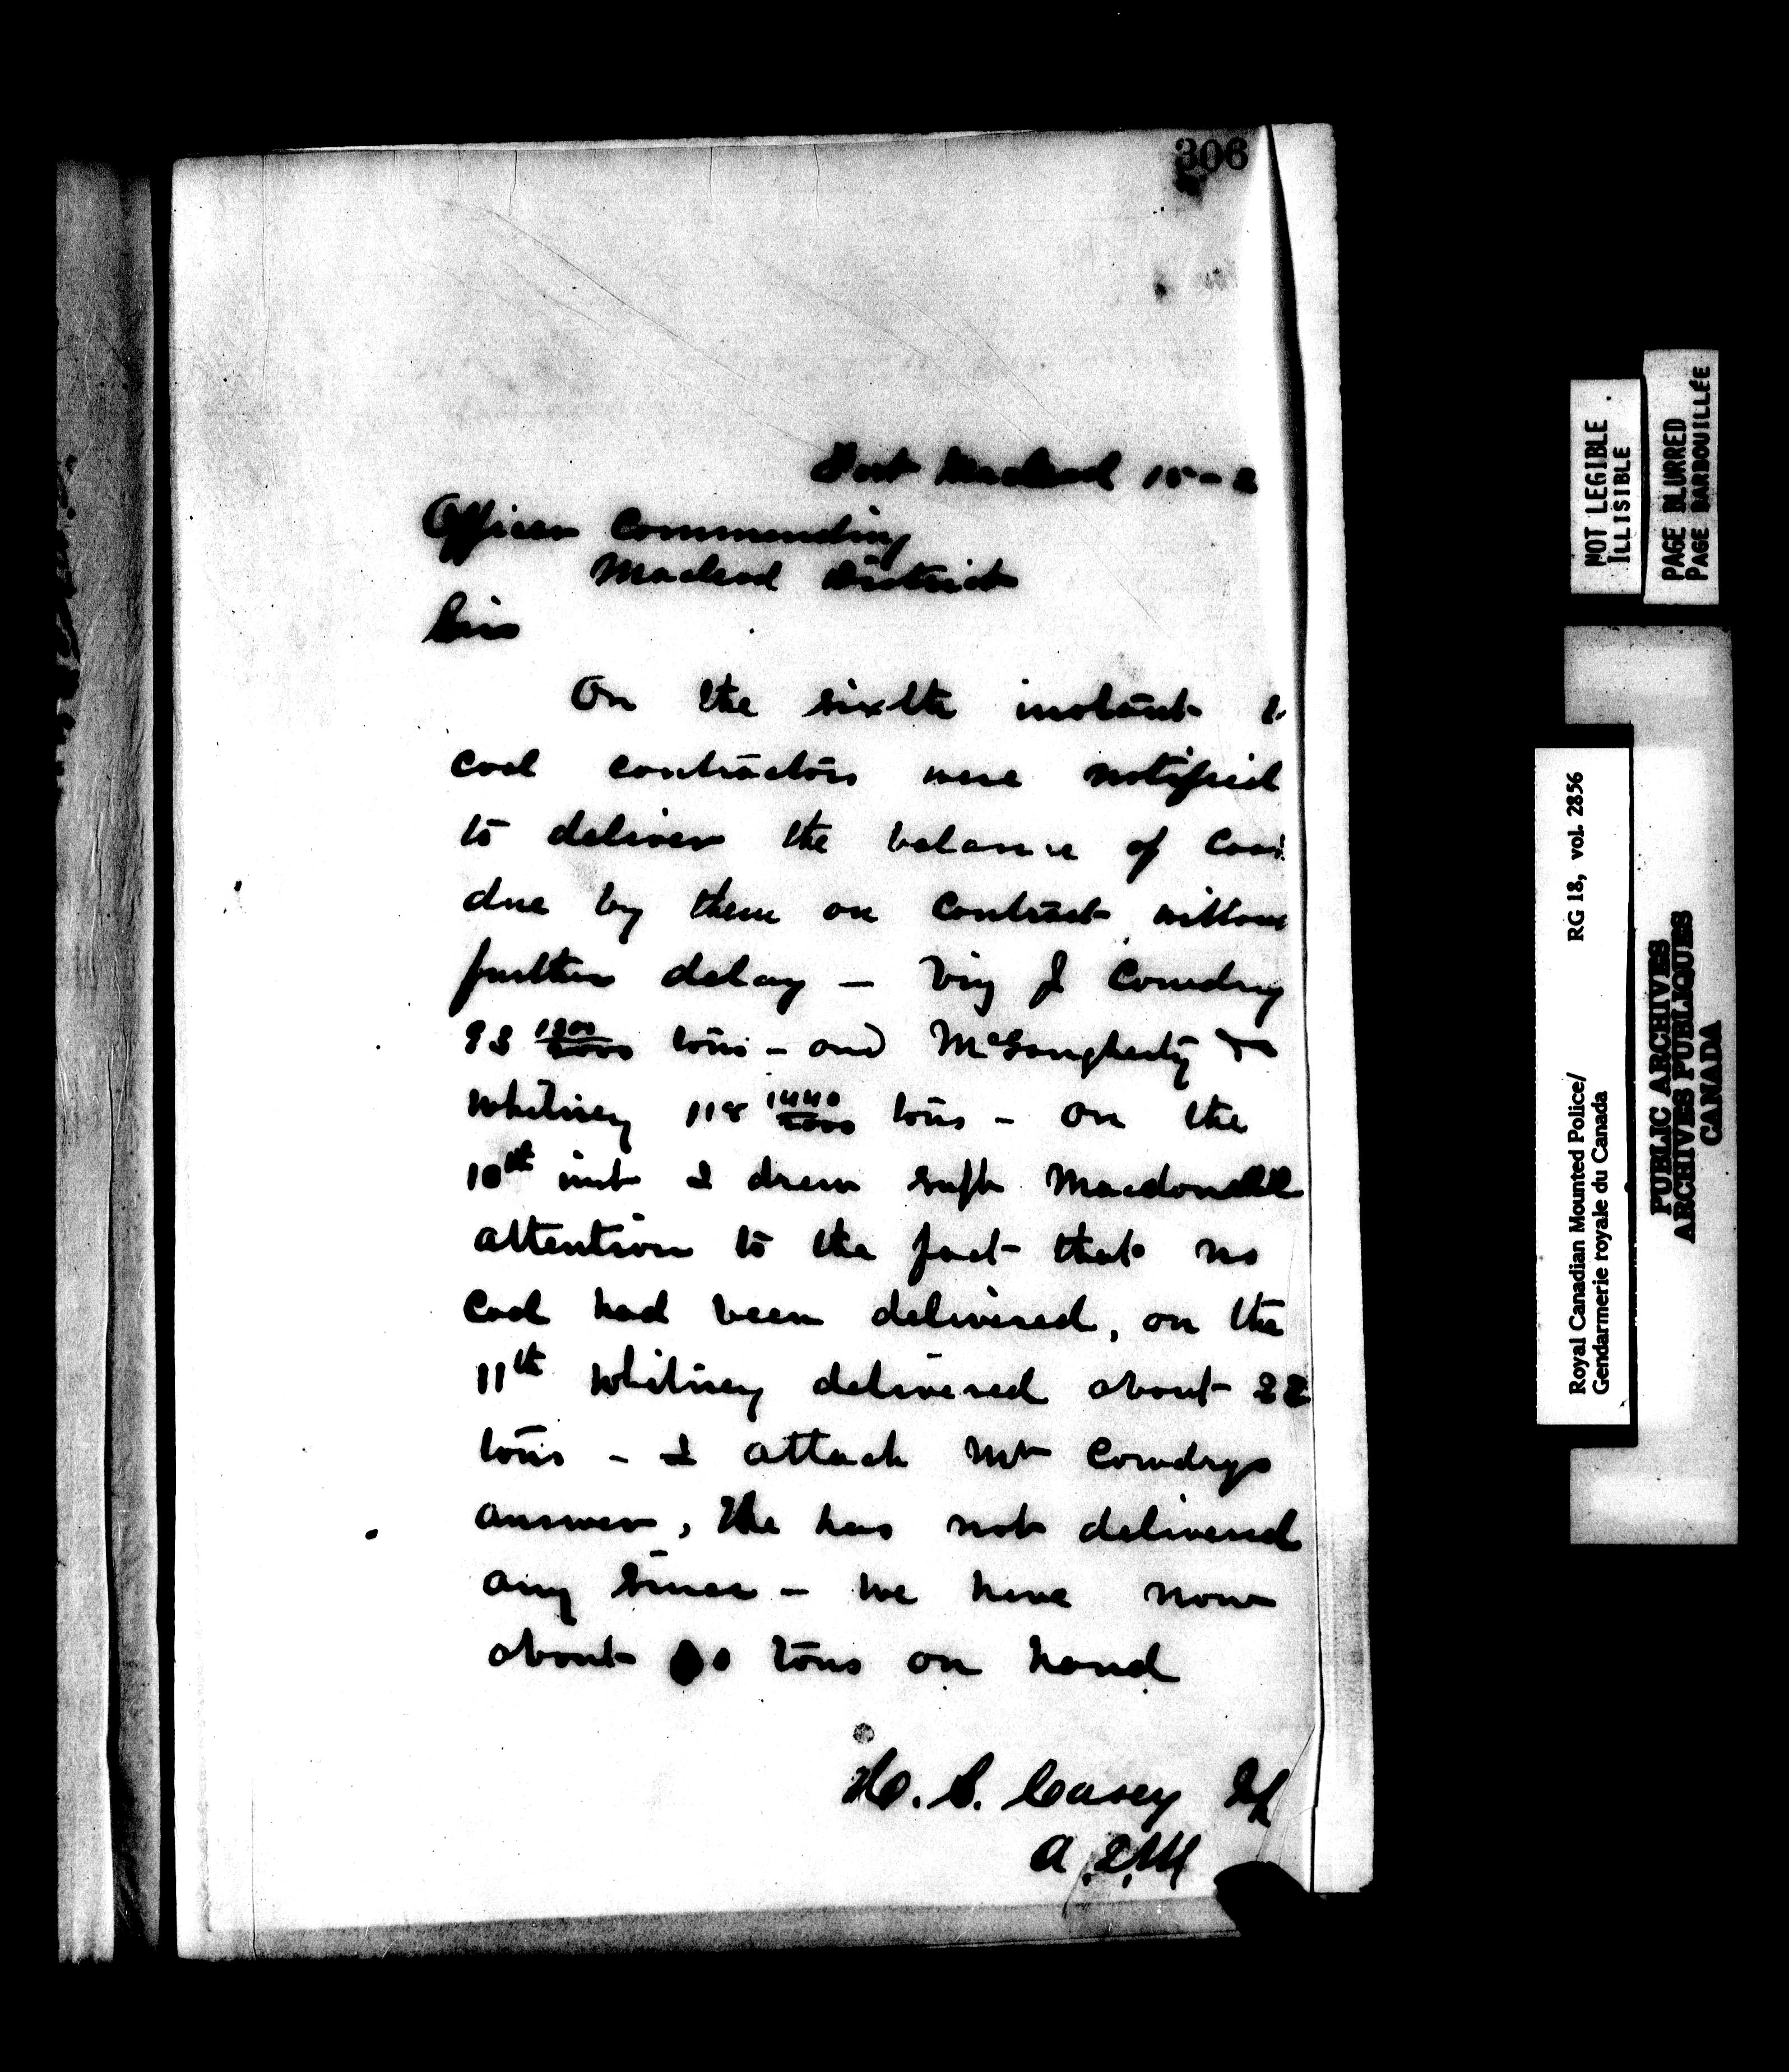 306
Fort Macleod 15-2
Officer Commanding
Macleod District
Sir
On the sixth instant
coal contractors were notified
to deliver the balance of coal
due by them on contract without
further delay – Viz J Cowdry
93 1800/2000 tons – and McGaugherty &
Whitney 118 1440/2000 tons – on the
10th inst I drew Supt Macdonell
attention to the fact that no
coal had been delivered, on the
11th Whitney delivered about 22
tons – I attach Mr Cowdrys
answer, he has not delivered
any since – we have now
about tons on hand
H. S. Casey
A.Q.M
NOT LEGIBLE
ILLISIBLE
PAGE BLURRED
PAGE BARBOUILLÉE
Royal Canadian Mounted Police/ RG 18, vol. 2856
Gendarmerie royale du Canada
PUBLIC ARCHIVES
ARCHIVES PUBLIQUES
CANADA